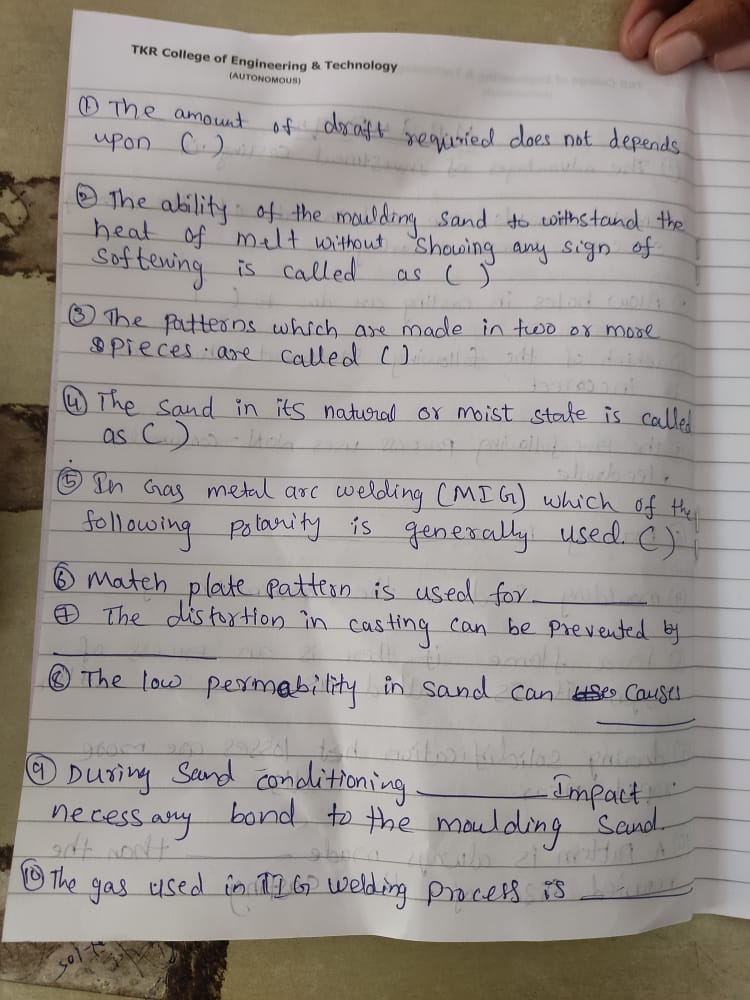 TKR College of Engineering & Technology
(AUTONOMOUS)
① The amount of draft requried does not depends
upon (.)
② The ability of the moulding sand to withstand the
heat of melt without showing any sign of
softening is called as ( )
③ The patterns which are made in two or more
pieces are called ( )
④ The sand in its natural or moist state is called
as ( )
⑤ In Gas metal arc welding (MIG) which of the
following polarity is generally used. ( )
⑥ Match plate pattern is used for ______
⑦ The distortion in casting can be prevented by
______
⑧ The low permability in sand can causes
______
⑨ During Sand conditioning ______ Impact
necessary bond to the moulding sand.
⑩ The gas used in TIG welding process is ______